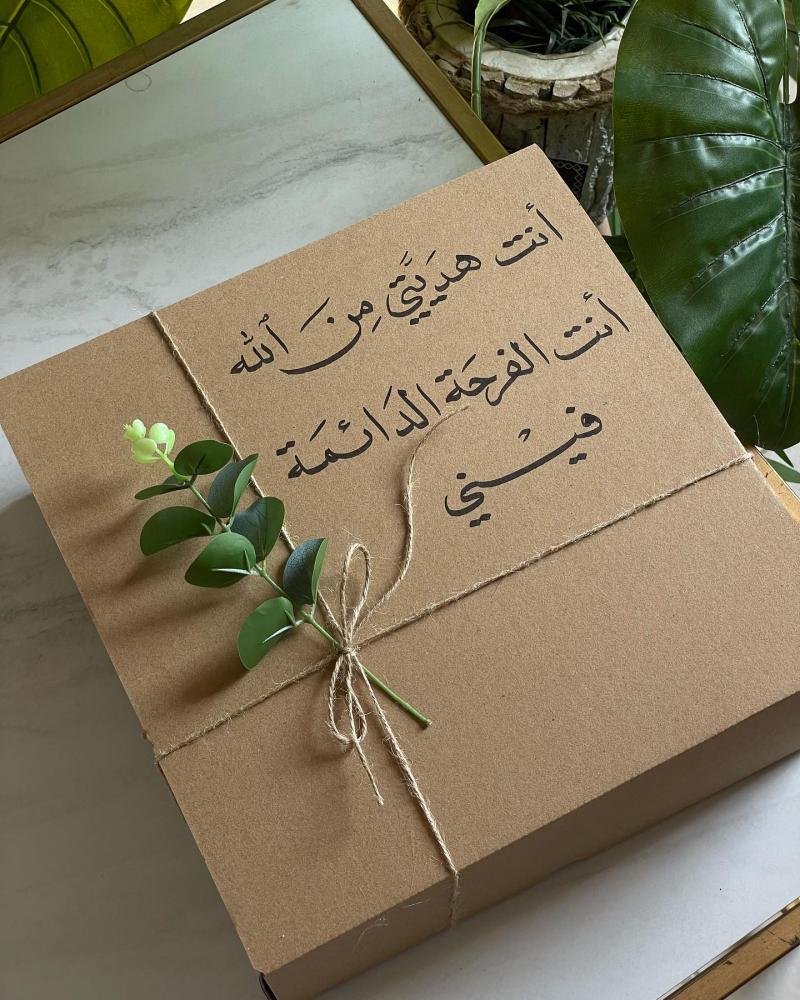 أنت هَديَّتي مِنَ ٱلله
أنت الفرحَة الدَائمَة
فيـني